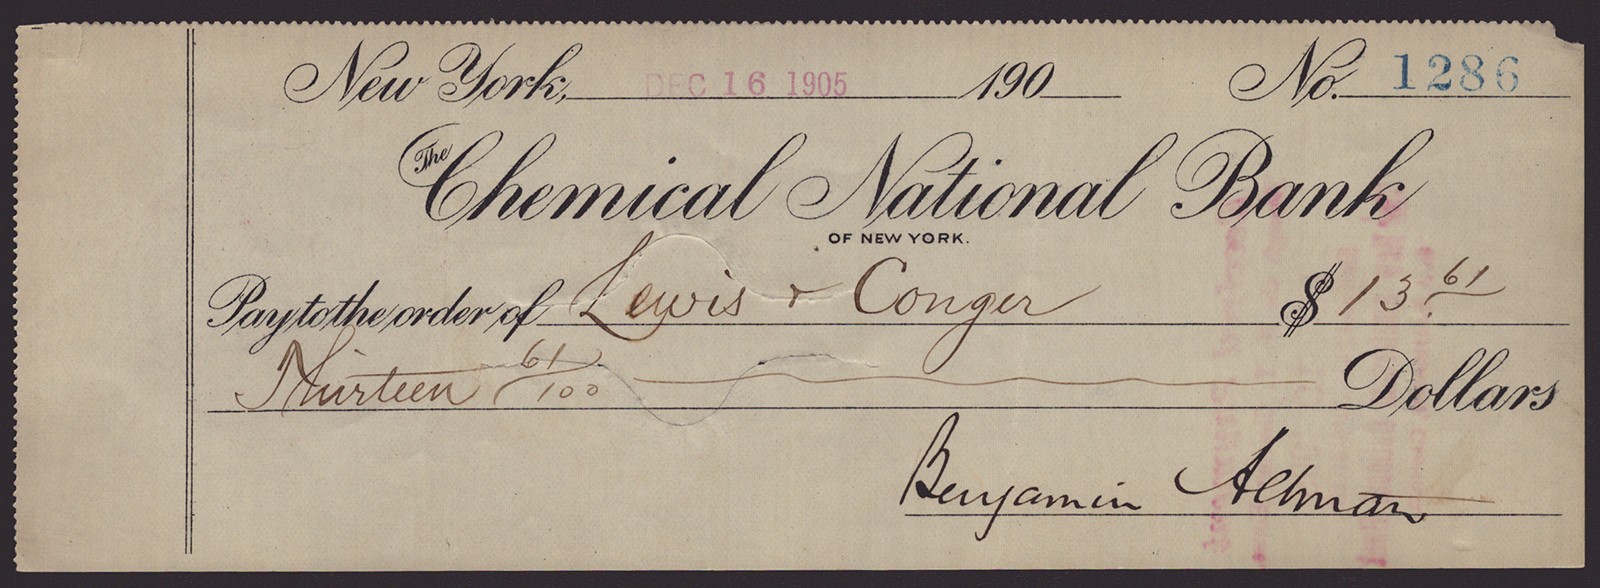 New York, DEC 16 1905 190 No. 1286
The Chemical National Bank
OF NEW YORK.
Pay to the order of Lewis & Conger $ 13.61
Thirteen 61/100 Dollars
Benjamin Altman